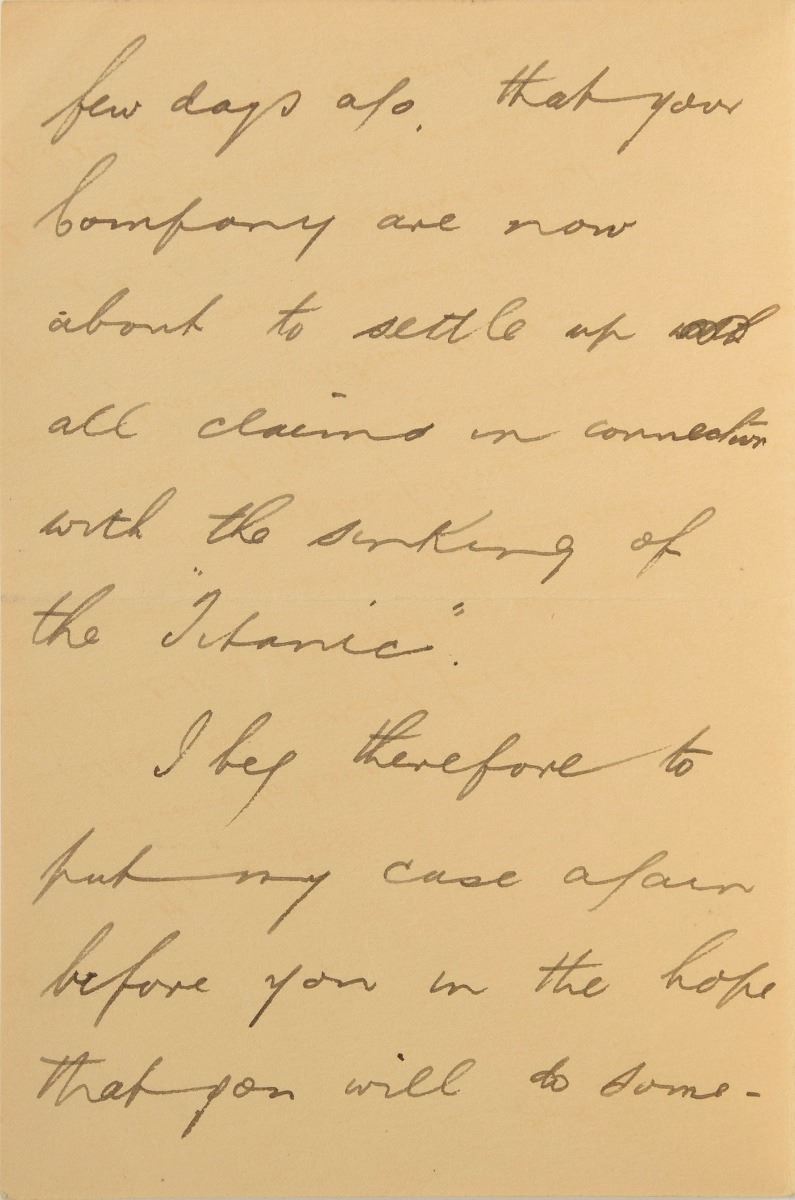 few days ago, that your
Company are now
about to settle up
all claims in connection
with the sinking of
the "Titanic".
I beg therefore to
put my case again
before you in the hope
that you will do some-